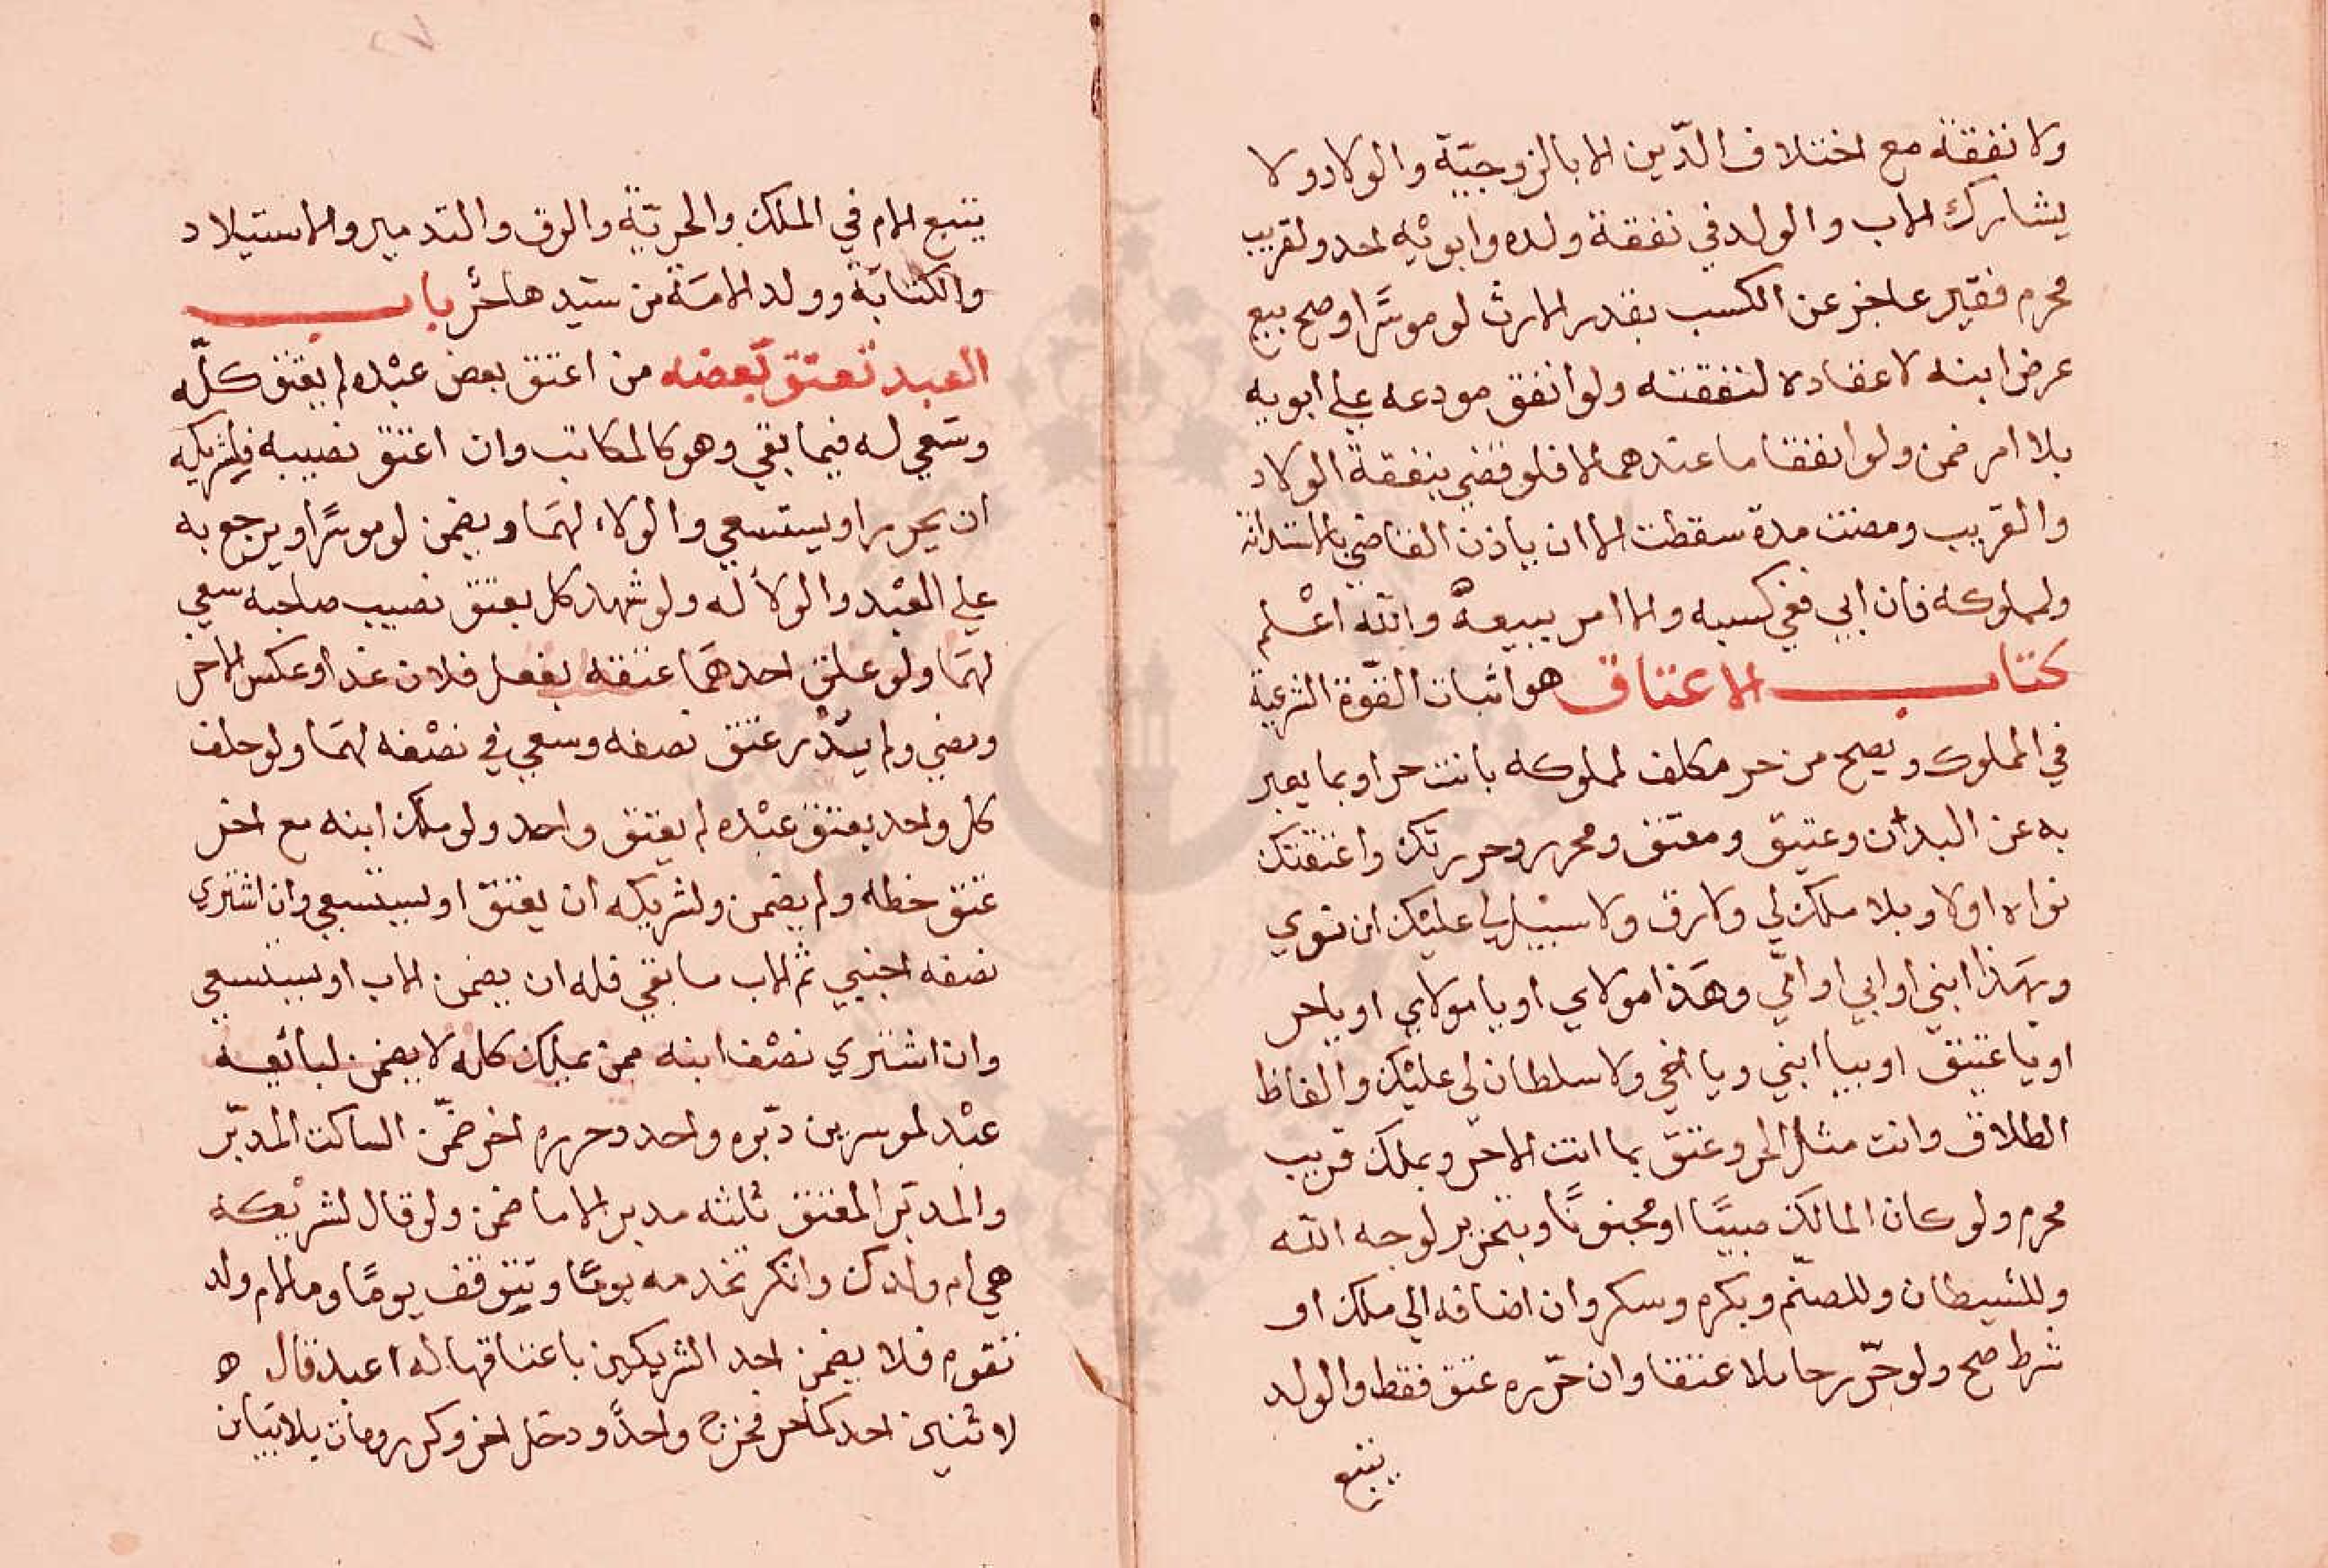 ولا نفقة مع اختلاف الدّين الا بالزوجيّة والولاد ولا
يشارك الاب والولد في نفقة ولده وابويْه احد ولقريب
محرم فقير عاجز عن الكسب بقدر الارث لو موسرًا وصح بيع
عرض ابنه لا عقاده لنفقته ولو انفق مودعه علي ابويه
بلا امر ضمن ولو انفقا ما عندهما لا فلو قضي بنفقة الولاد
والقريب ومضت مدة سقطت الا ان ياذن القاضي بالاستدانة
ولمملوكه فان ابي ففي كسبه والا امر ببيعه والله اعْلم
كتاب الاعتاق هو اثبات القوّة الشرعية
في المملوك ويصح من حر مكلف لمملوكه بانت حر او بما يعبر
به عن البدن وعتيق ومعتق ومحرر وحررتك واعتقتك
نواه اولا وبلا ملك لي ولا رق ولا سبيْل لي عليْك ان نوي
وبهذا ابني او ابي او امّي وهَذا مولاي او يا مولاي او ياحر
او يا عتيق او بيا ابني ويا اخي ولا سلطان لي عليْك والفاظ
الطلاق وانت مثل الحر وعتق بما انت الاحرّ وبملك قريب
محرم ولو كان المالك صبيًا او مجنونًا وبتحرير لوجه الله
وللشيطان وللصنم وبكره وسكر وان اضافه الي ملك او
شرط صح ولو حرّر حاملا عتقا وان حرّره عتق فقط والولد
يتبع
يتبع الام في الملك والحريّة والرق والتدبير والاستيلاد
والكتابة وولد الامَة من سيّدها حرٌ باب
العبد يعتق بعضه من اعتق بعض عبْده لم يعتق كلّه
وسَعي له فيما بقي وهو كالمكاتب وان اعتق نصيبه فلشريكه
ان يحرر او يستسعي والولاء لهمَا ويضمن لو موسرًا ويرجع به
علي العبْد والولأ له ولو شهد كل بعتق نصيب صاحبه سعي
لهمَا ولو علق احدهمَا عتقه بفعل فلان غدا وعكس الاخر
ومضي ولم يدْر عتق نصفه وسعي في نصْفه لهمَا ولو حلف
كل واحد بعتق عبْده لم يعتق واحد ولو ملك ابنه مع اخر
عتق حظه ولم يضمن ولشريكه ان يعتق او يستسعي وان اشتري
نصفه اجنبي ثم الاب ما بقي فله ان يضمن الاب او يستسعي
وان اشتري نصْف ابنه ممن يملك كله لا يضمن لبائعه
عبْد لموسرين دبّره واحد وحرره اخر ضمّن الساكت المدبّر
والمدبّر المعتق ثلثه مدبرا لا ما ضمن ولو قال لشريْكه
هي ام ولدك وانكر تخدمه يومًا وتتوقف يومًا وما لام ولد
تقوم فلا يضمن احد الشريكين باعتاقها له اعبد قال ه
لاثنين احدكما حر فخرج واحدٌ ودخل اخر وكرر ومات بلا بيان